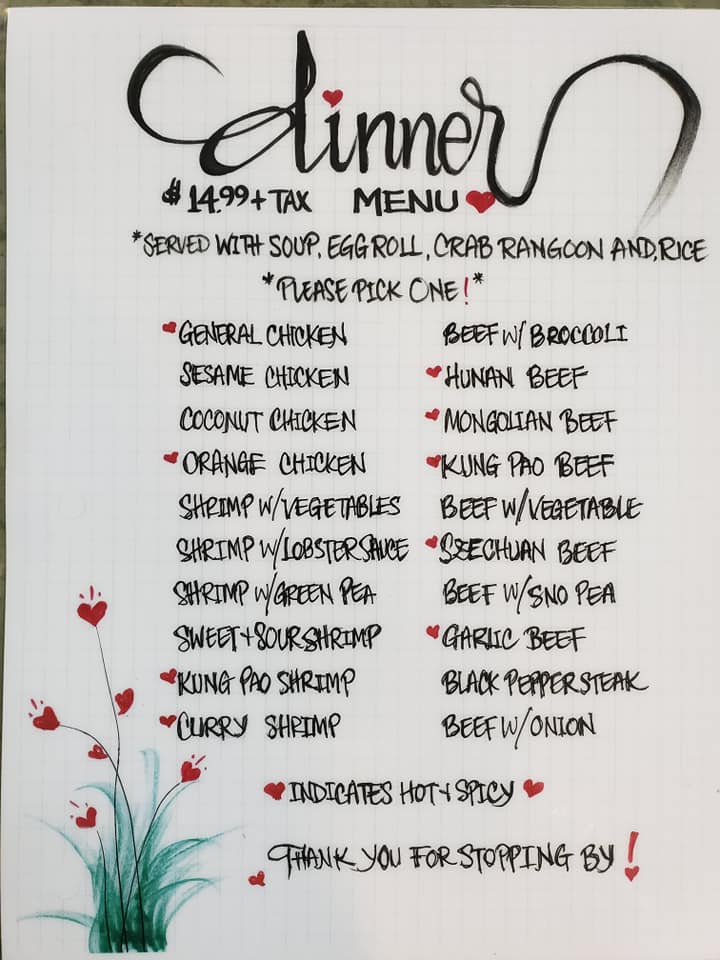 dinner
$14.99 + TAX MENU
*SERVED WITH SOUP, EGG ROLL, CRAB RANGOON AND, RICE
*PLEASE PICK ONE!*
GENERAL CHICKEN
SESAME CHICKEN
COCONUT CHICKEN
ORANGE CHICKEN
SHRIMP W/VEGETABLES
SHRIMP W/LOBSTER SAUCE
SHRIMP W/GREEN PEA
SWEET + SOUR SHRIMP
KUNG PAO SHRIMP
CURRY SHRIMP
BEEF W/ BROCCOLI
HUNAN BEEF
MONGOLIAN BEEF
KUNG PAO BEEF
BEEF W/VEGETABLE
SZECHUAN BEEF
BEEF W/SNO PEA
GARLIC BEEF
BLACK PEPPER STEAK
BEEF W/ONION
INDICATES HOT + SPICY
THANK YOU FOR STOPPING BY!